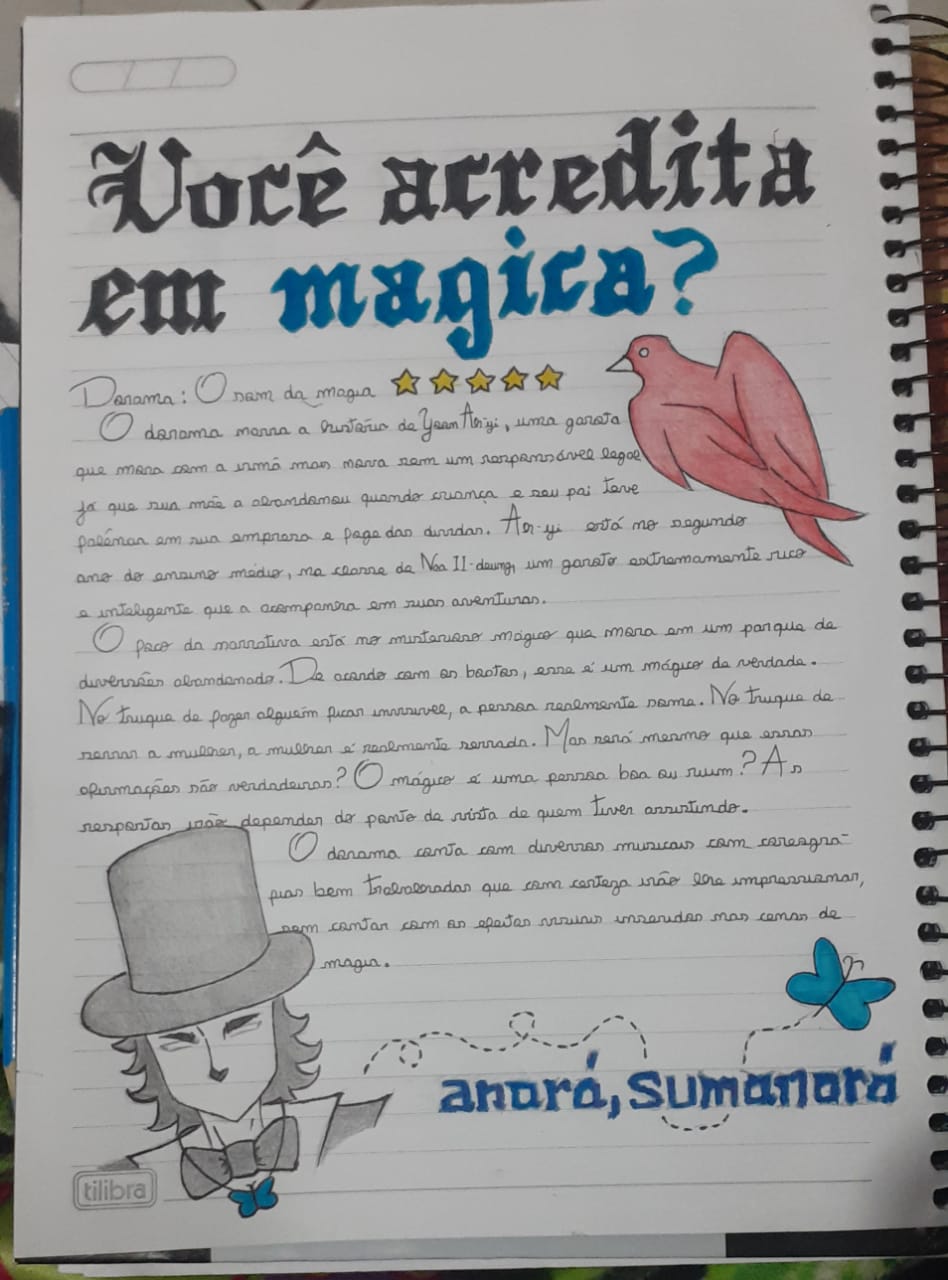 Você acredita
em magica?
Dorama: O som da magia
O dorama narra a história de Yoon Ah-yi, uma garota
que mora com a irmã mais nova sem um responsável legal
já que sua mãe a abandonou quando criança e seu pai teve
em sua empresa e das dividas. Ah-yi está no segundo
ano do ensino médio, na classe de Naa Il-deung, um garoto extremamente rico
e inteligente que a acompanha em suas aventuras.
O foco da narrativa está no misterioso mágico que mora em um parque de
diversões abandonado. De acordo com os boatos, esse é um mágico de verdade.
No truque de fazer alguém ficar invisivel, a pessoa realmente some. No truque de
serrar a mulher, a mulher é realmente serrada. Mas será mesmo que essas
afirmações são verdadeiras? O mágico é uma pessoa boa ou ruim? As
respostas irão depender do ponto de vista de quem tiver assistindo.
O dorama conta com diversos musicais com coreogra-
fias bem trabalhadas que com certeza irão lhe impressionar,
sem contar com os efeitos visuais inseridos nas cenas de
magia.
anará, sumanará
tilibra